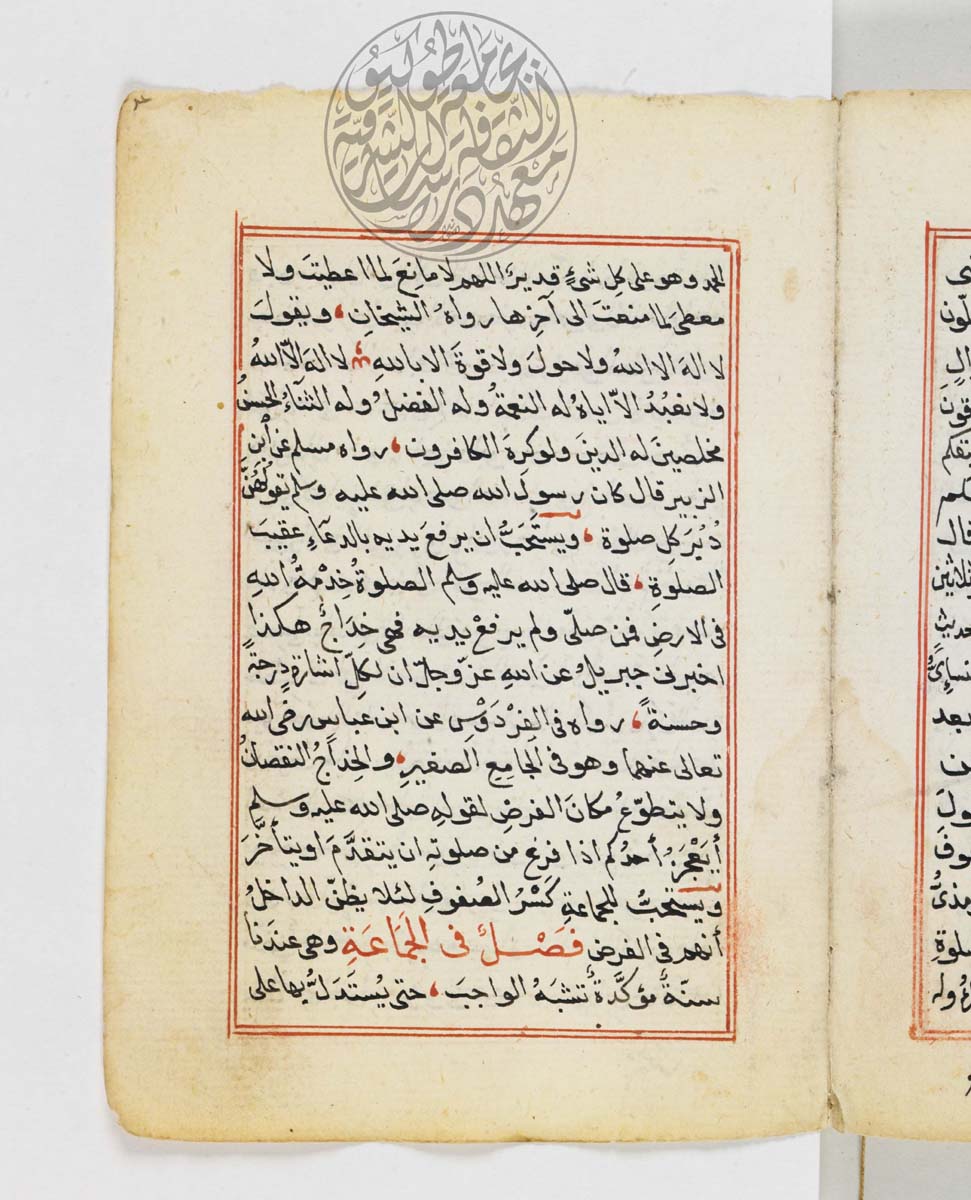 الحمد وهو على كل شئ قدير اللهم لا مانع لما اعطيت ولا
معطى لما منعت الى آخرها رواه الشيخان، ويقول
لا اله الا الله ولا حول ولا قوة الا بالله لا اله الّا الله
ولا نعبد الّا اياه له النعمة وله الفضل وله الثناء الحسن
مخلصين له الدين ولو كره الكافرون، رواه مسلم عن ابن
الزبير قال كان رسول الله صلى الله عليه وسلم يقولهنّ
دبر كل صلوة، ويستحبّ ان يرفع يديه بالدعاء عقيب
الصلوة، قال صلى الله عليه وسلم الصلوة خدمة الله
فى الارض فمن صلّى ولم يرفع يديه فهى خداج هكذا
اخبرنى جبريل عن الله عزّ وجلّ ان لكلّ اشارة درجة
وحسنة، رواه فى الفردوس عن ابن عباس رضى الله
تعالى عنهما وهو فى الجامع الصغير، والخداج النقصان
ولا يتطوّع مكان الفرض لقوله صلى الله عليه وسلم
أيعجز أحدكم اذا فرغ من صلوته ان يتقدّم او يتأخّر
ويستحبّ للجماعة كسر الصفوف لئلا يظنّ الداخل
أنهم فى الفرض فصل فى الجماعة وهى عندنا
سنّة مؤكّدة تشبه الواجب، حتى يستدلّ بها على
معهد الثقافة والدراسات الشرقية
جامعة طوكيو